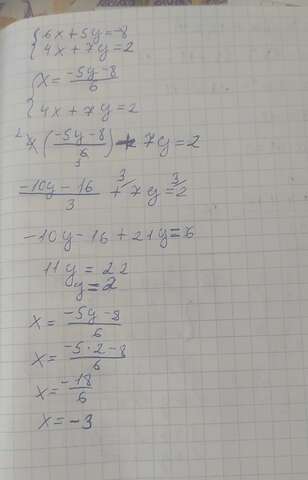 {6x+5y=-8
{4x+7y=2
{x=(-5y-8)/6
{4x+7y=2
²4((-5y-8)/6₃)+7y=2
(-10y-16)/3+³⁄7y=³⁄2
-10y-16+21y=6
11y=22
y=2
x=(-5y-8)/6
x=(-5·2-8)/6
x=-18/6
x=-3